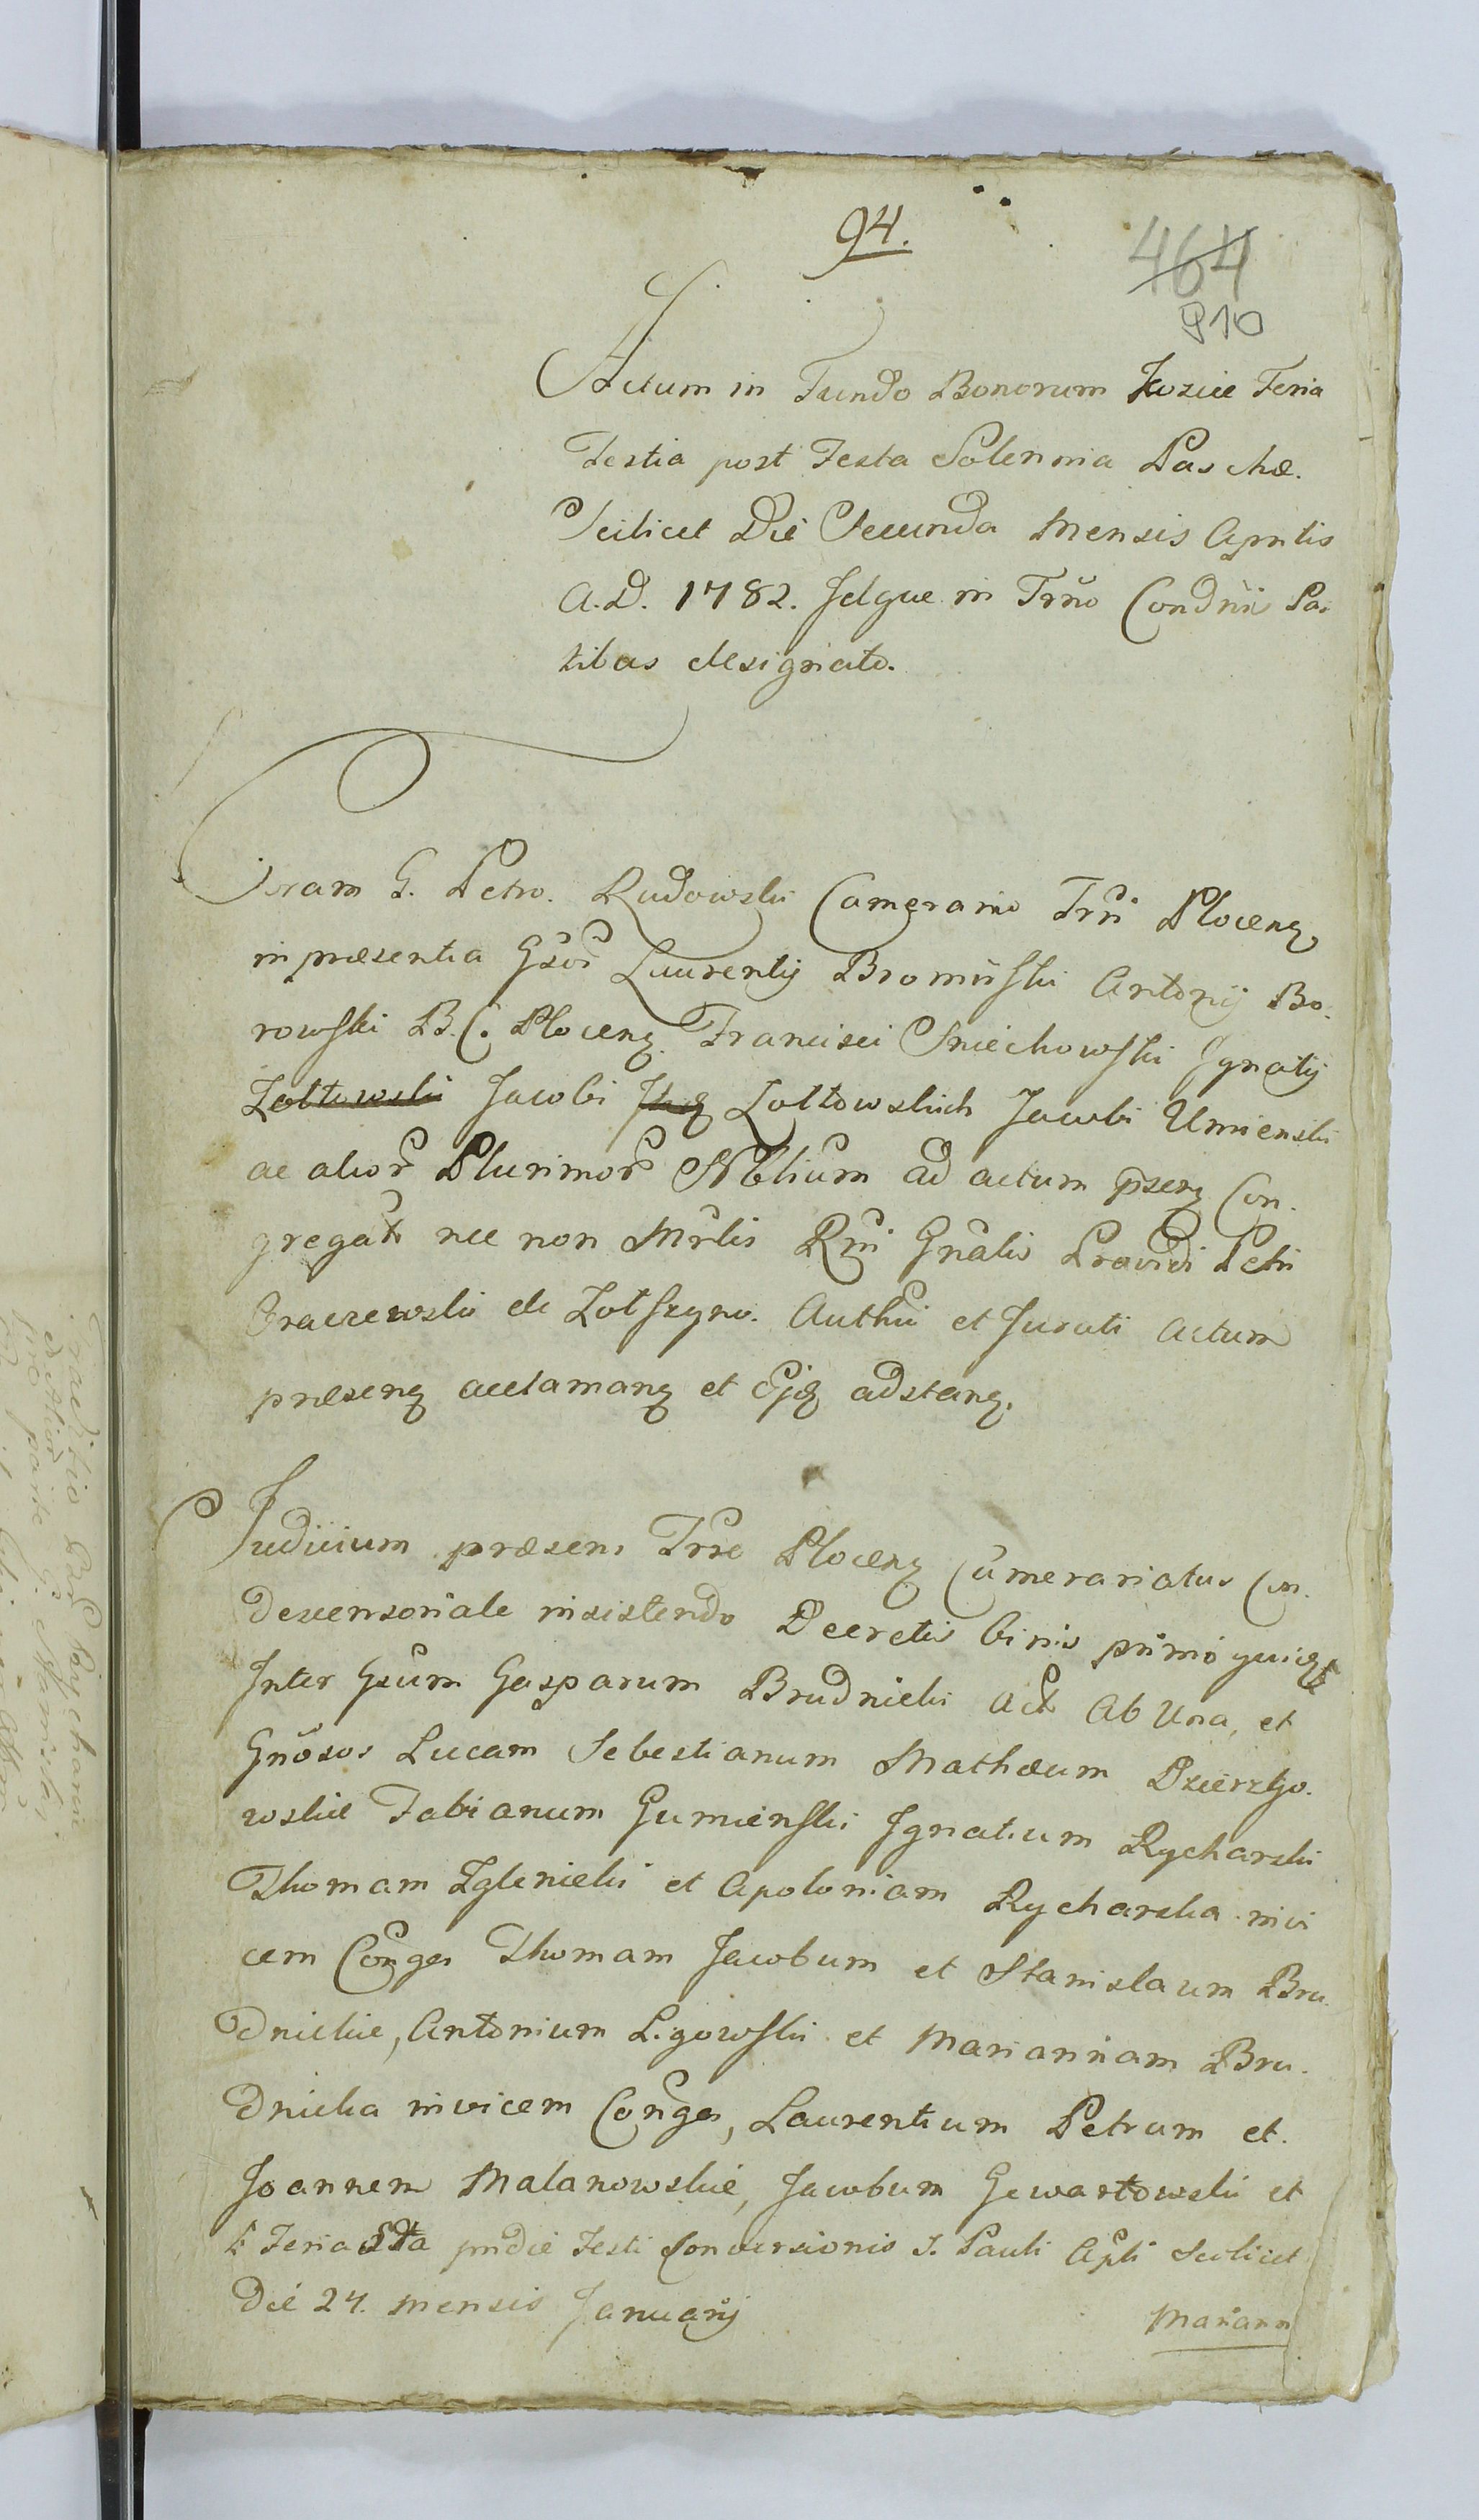 94.
464
910
Actum in Fundo Bonorum Kozice Feria
Tertia post Festa Solennia Paschæ.
Scilicet Die Secunda Mensis Aprilis
A.D. 1782. Idque in Trno Condnii Par
tibus designato.
Coram G. Petro. Rudowski Camerario Trri Plocenz
in præsentia Gsor Laurentij Bromirski Antonij Bo-
rowski B.C. Plocenz Francisci Sniechowski Ignatij
Zołtowski Jacobi Zołtowskich Jacobi Umienski
ac alior Plurimor Nblium ad actum psenz Con-
gregat nec non Mrlis Rni Gnalis Providi Petri
Graczewski de Zołszyno. Authci et Jurati actum
præsenz acclamanz et Ejq adstanz.
Judicium præsens Trre Plocenz Camerariatus Con-
descensoriale insistendo Decretis binis primo quiq
Inter Gsum Gasparum Brudnicki Act Ab Una, et
Gnosos Lucam Sebestianum Mathæum Dzierzgo-
wskie Fabianum Gumienski Ignatium Rycharski
Thomam Zglenicki et Apoloniam Rycharska invi
cem Conges Thomam Jacobum et Stanislaum Bru-
dnickie, Antonium Ligowski et Mariannam Bru-
dnicka invicem Conges, Laurentium Petrum et
Joannem Malanowskie, Jacobum Gewartowski et
F Feria 5ta pridie Festi Conversionis S. Pauli Apli Scilicet
Die 24. mensis Januarij
Mariann